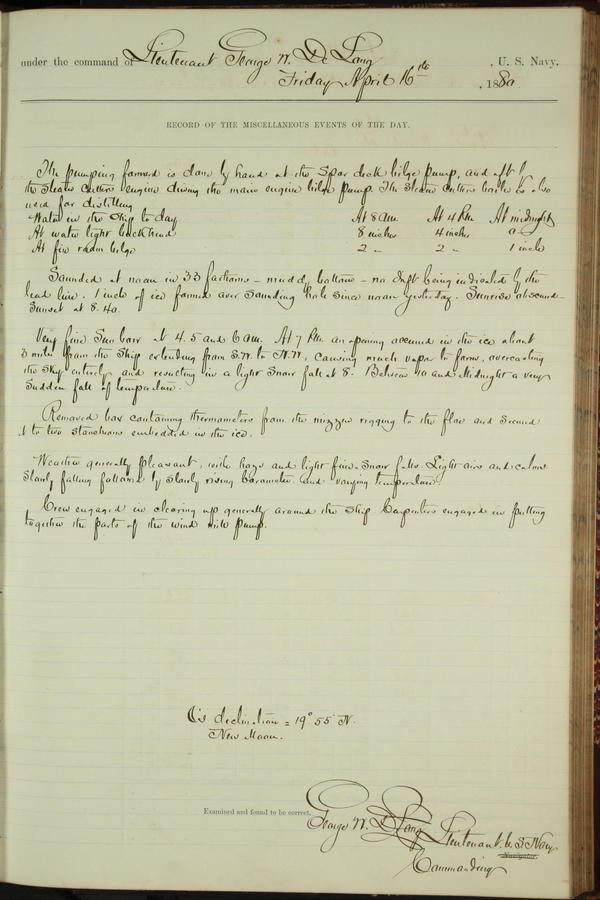 under the command of Lieutenant George W. De Long, U. S. Navy,
Friday April 16th, 1880
RECORD OF THE MISCELLANEOUS EVENTS OF THE DAY.
The pumping forward is done by hand at the spar deck bilge pump, and aft by
the steam cutters engine driving the main engine bilge pump. The steam cutters boiler is also
used for distilling
Water in the Ship to day At 8 am At 4 Pm At midnight
At water tight bulkhead 8 inches 4 inches
At fire room bilge 2 " 2 " 1 inch
Sounded at noon in 33 fathoms - muddy bottom - no drift being indicated by the
lead line. 1 inch of ice formed over sounding hole since noon yesterday. Sunrise obscured -
Sunset at 8.40.
Very fine snow at 4. 5 and 6 am. At 7 Pm an opening occurred in the ice about
3 miles from the Ship extending from S.W. to N.W., causing much vapor to form, overcasting
the sky entirely and resulting in a light snow fall at 8. Between 10 and Midnight a very
sudden fall of temperature.
Removed box containing thermometers from the mizzen rigging to the floe and secured
it to two stanchions embedded in the ice.
Weather generally pleasant, with haze and light fine snow falls. Light airs and calms
Slowly falling followed by slowly rising barometer and varying temperature.
Crew engaged in clearing up generally around the ship Carpenters engaged in putting
together the parts of the wind mill pump.
☾'s declination = 19° 55' N.
New Moon.
Examined and found to be correct.
George W. De Long Lieutenant U. S. Navy
Navigator.
Commanding